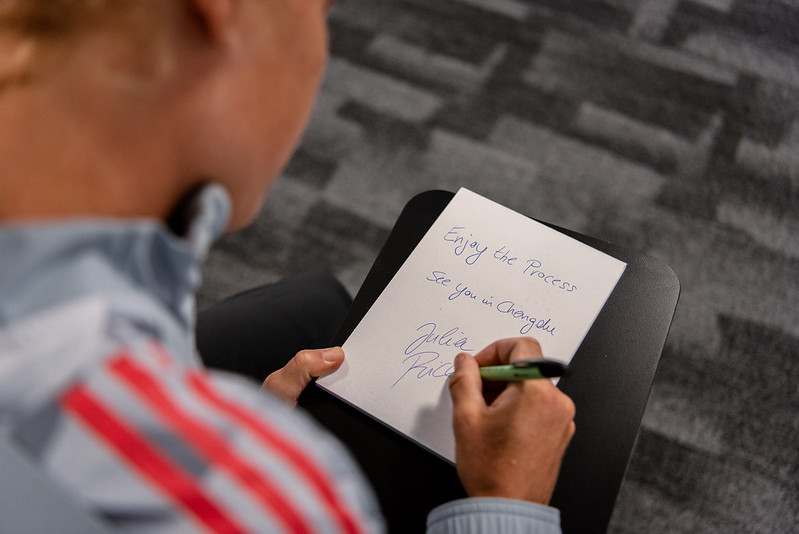 Enjoy the Process
See you in Chengdu
Julia